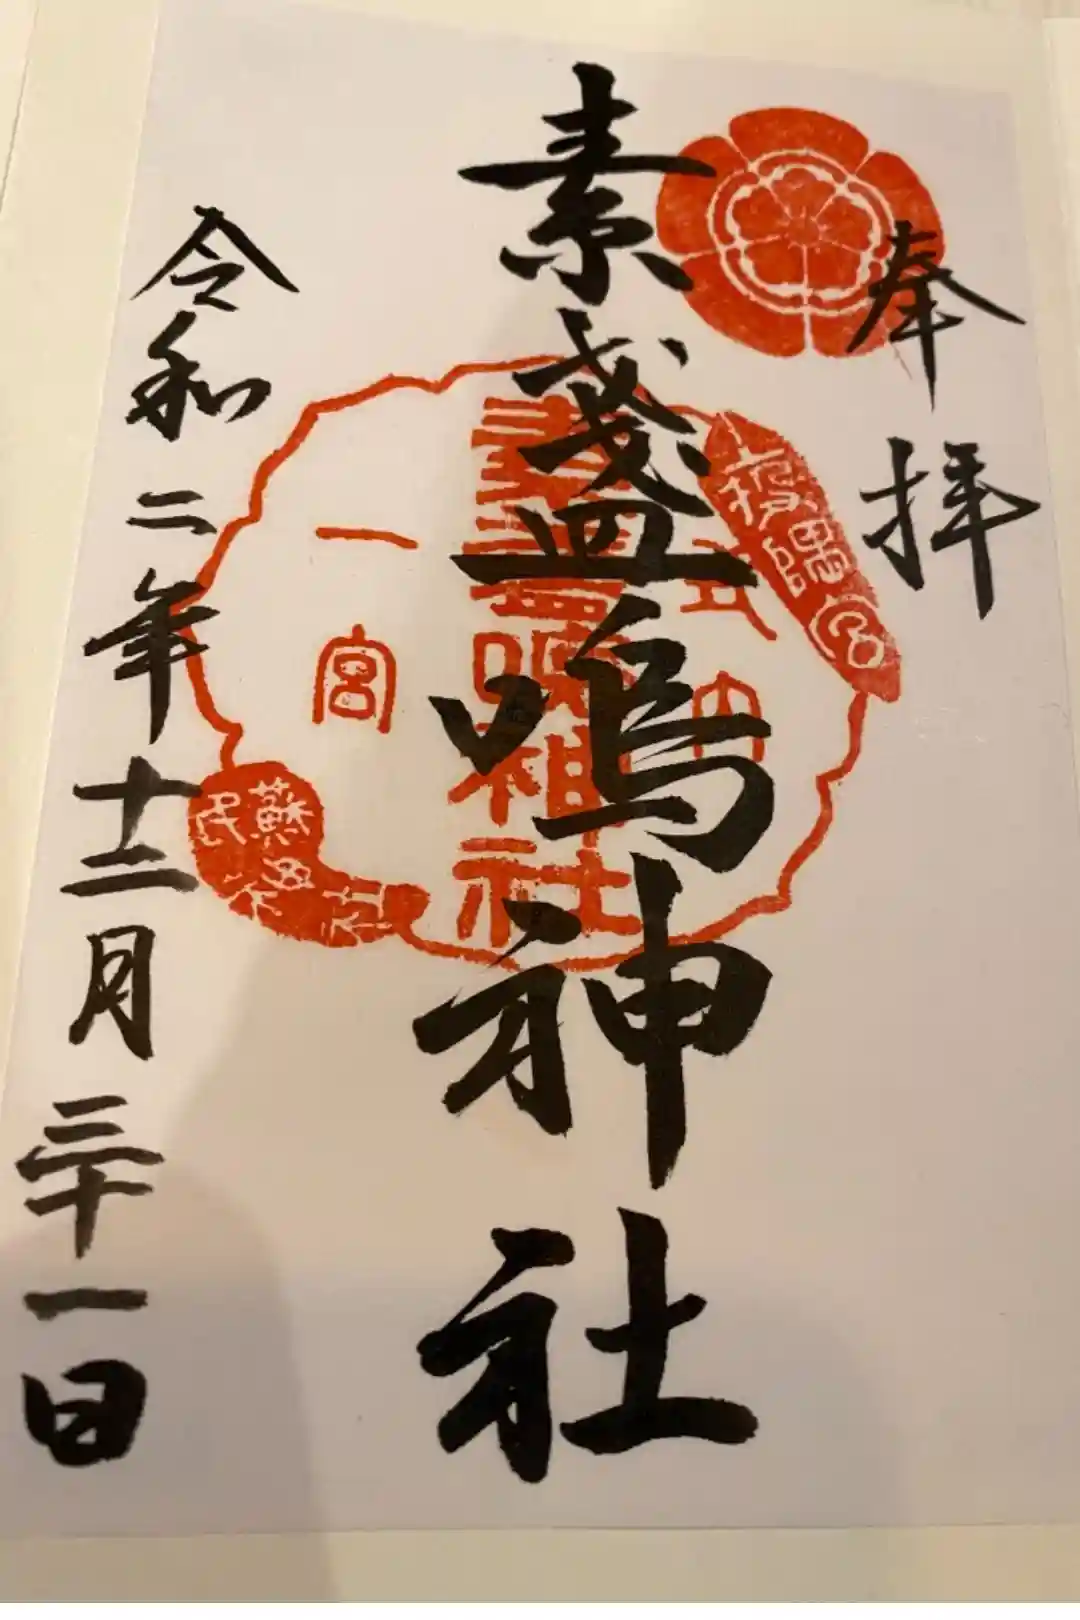 奉拝
素盞嗚神社
式内
素盞嗚祖社
一宮
蘇民
令和二年十二月三十一日